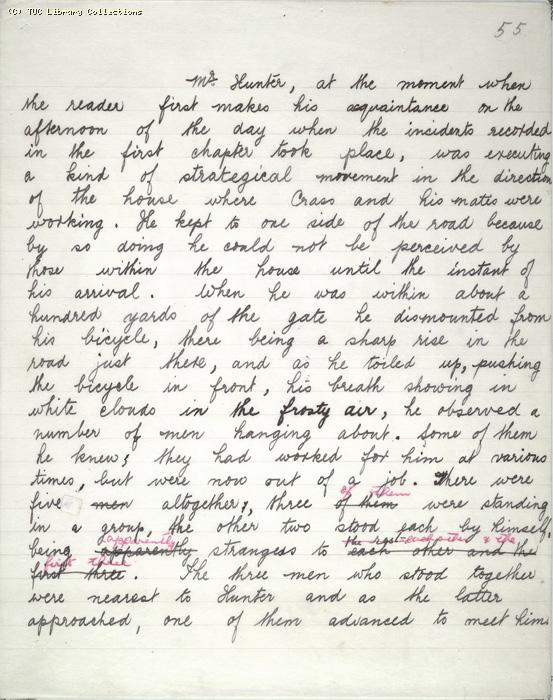 (C) TUC Library Collections
55
Mr. Hunter, at the moment when
the reader first makes his acquaintance on the
afternoon of the day when the incidents recorded
in the first chapter took place, was executing
a kind of strategical movement in the direction
of the house where Crass and his mates were
working. He kept to one side of the road because
by so doing he could not be perceived by
those within the house until the instant of
his arrival. When he was within about a
hundred yards of the gate he dismounted from
his bicycle, there being a sharp rise in the
road just there, and as he toiled up, pushing
the bicycle in front, his breath showing in
white clouds in the frosty air, he observed a
number of men hanging about. Some of them
he knew; they had worked for him at various
times, but were now out of a job. There were
of them
five men altogether; three of them were standing
in a group, the other two stood each by himself,
apparently each other & the
being apparently strangers to the rest each other and the
first three
first three. The three men who stood together
were nearest to Hunter and as the latter
approached, one of them advanced to meet him.